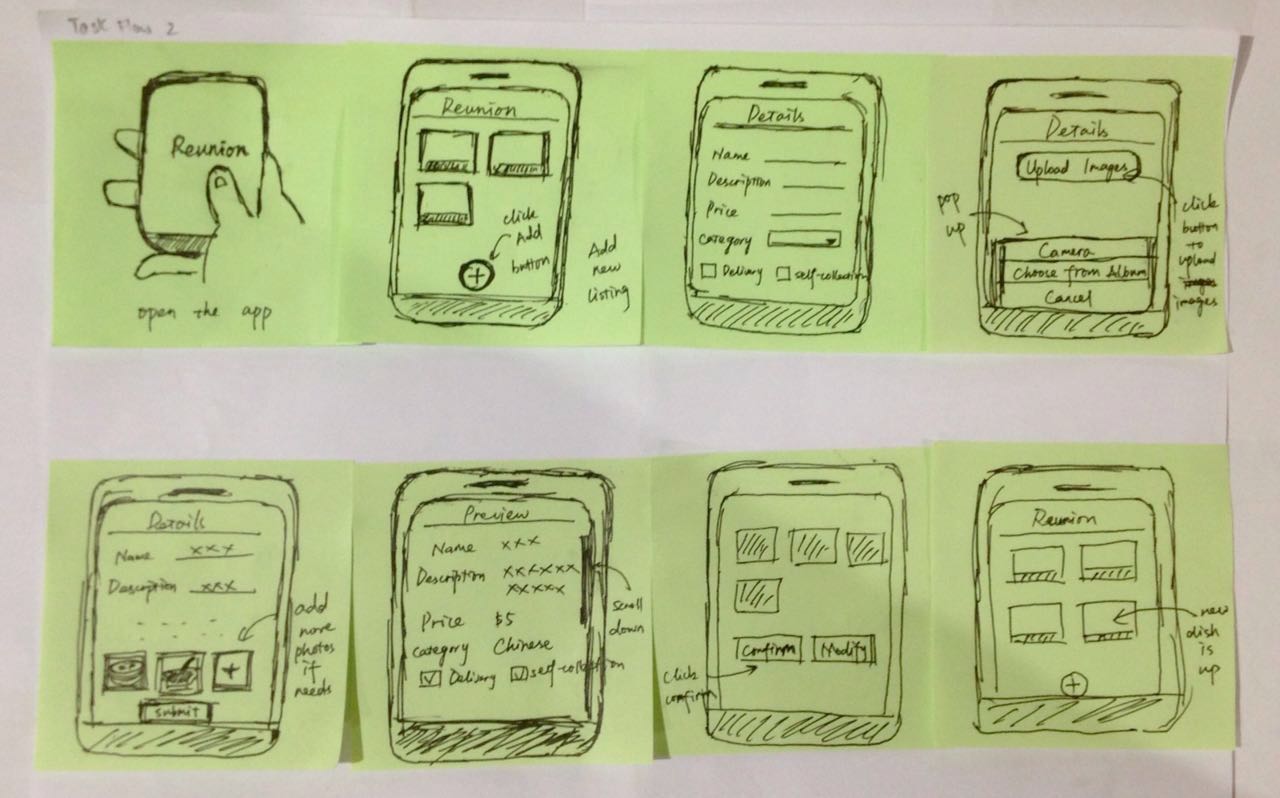 Task Flow 2
Reunion
open the app
Reunion
click
Add
button
+
Add
new
listing
Details
Name
Description
Price
Category
Delivery
self-collection
Details
Upload Images
pop
up
click
button
to
upload
images
Camera
Choose from Album
Cancel
Details
Name xxx
Description xxx
+
submit
add
more
photos
if
needs
Preview
Name xxx
Description xxxxxx
xxxxx
Price $5
Category Chinese
Delivery self-collection
scroll
down
Confirm Modify
click
confirm
Reunion
new
dish
is
up
+